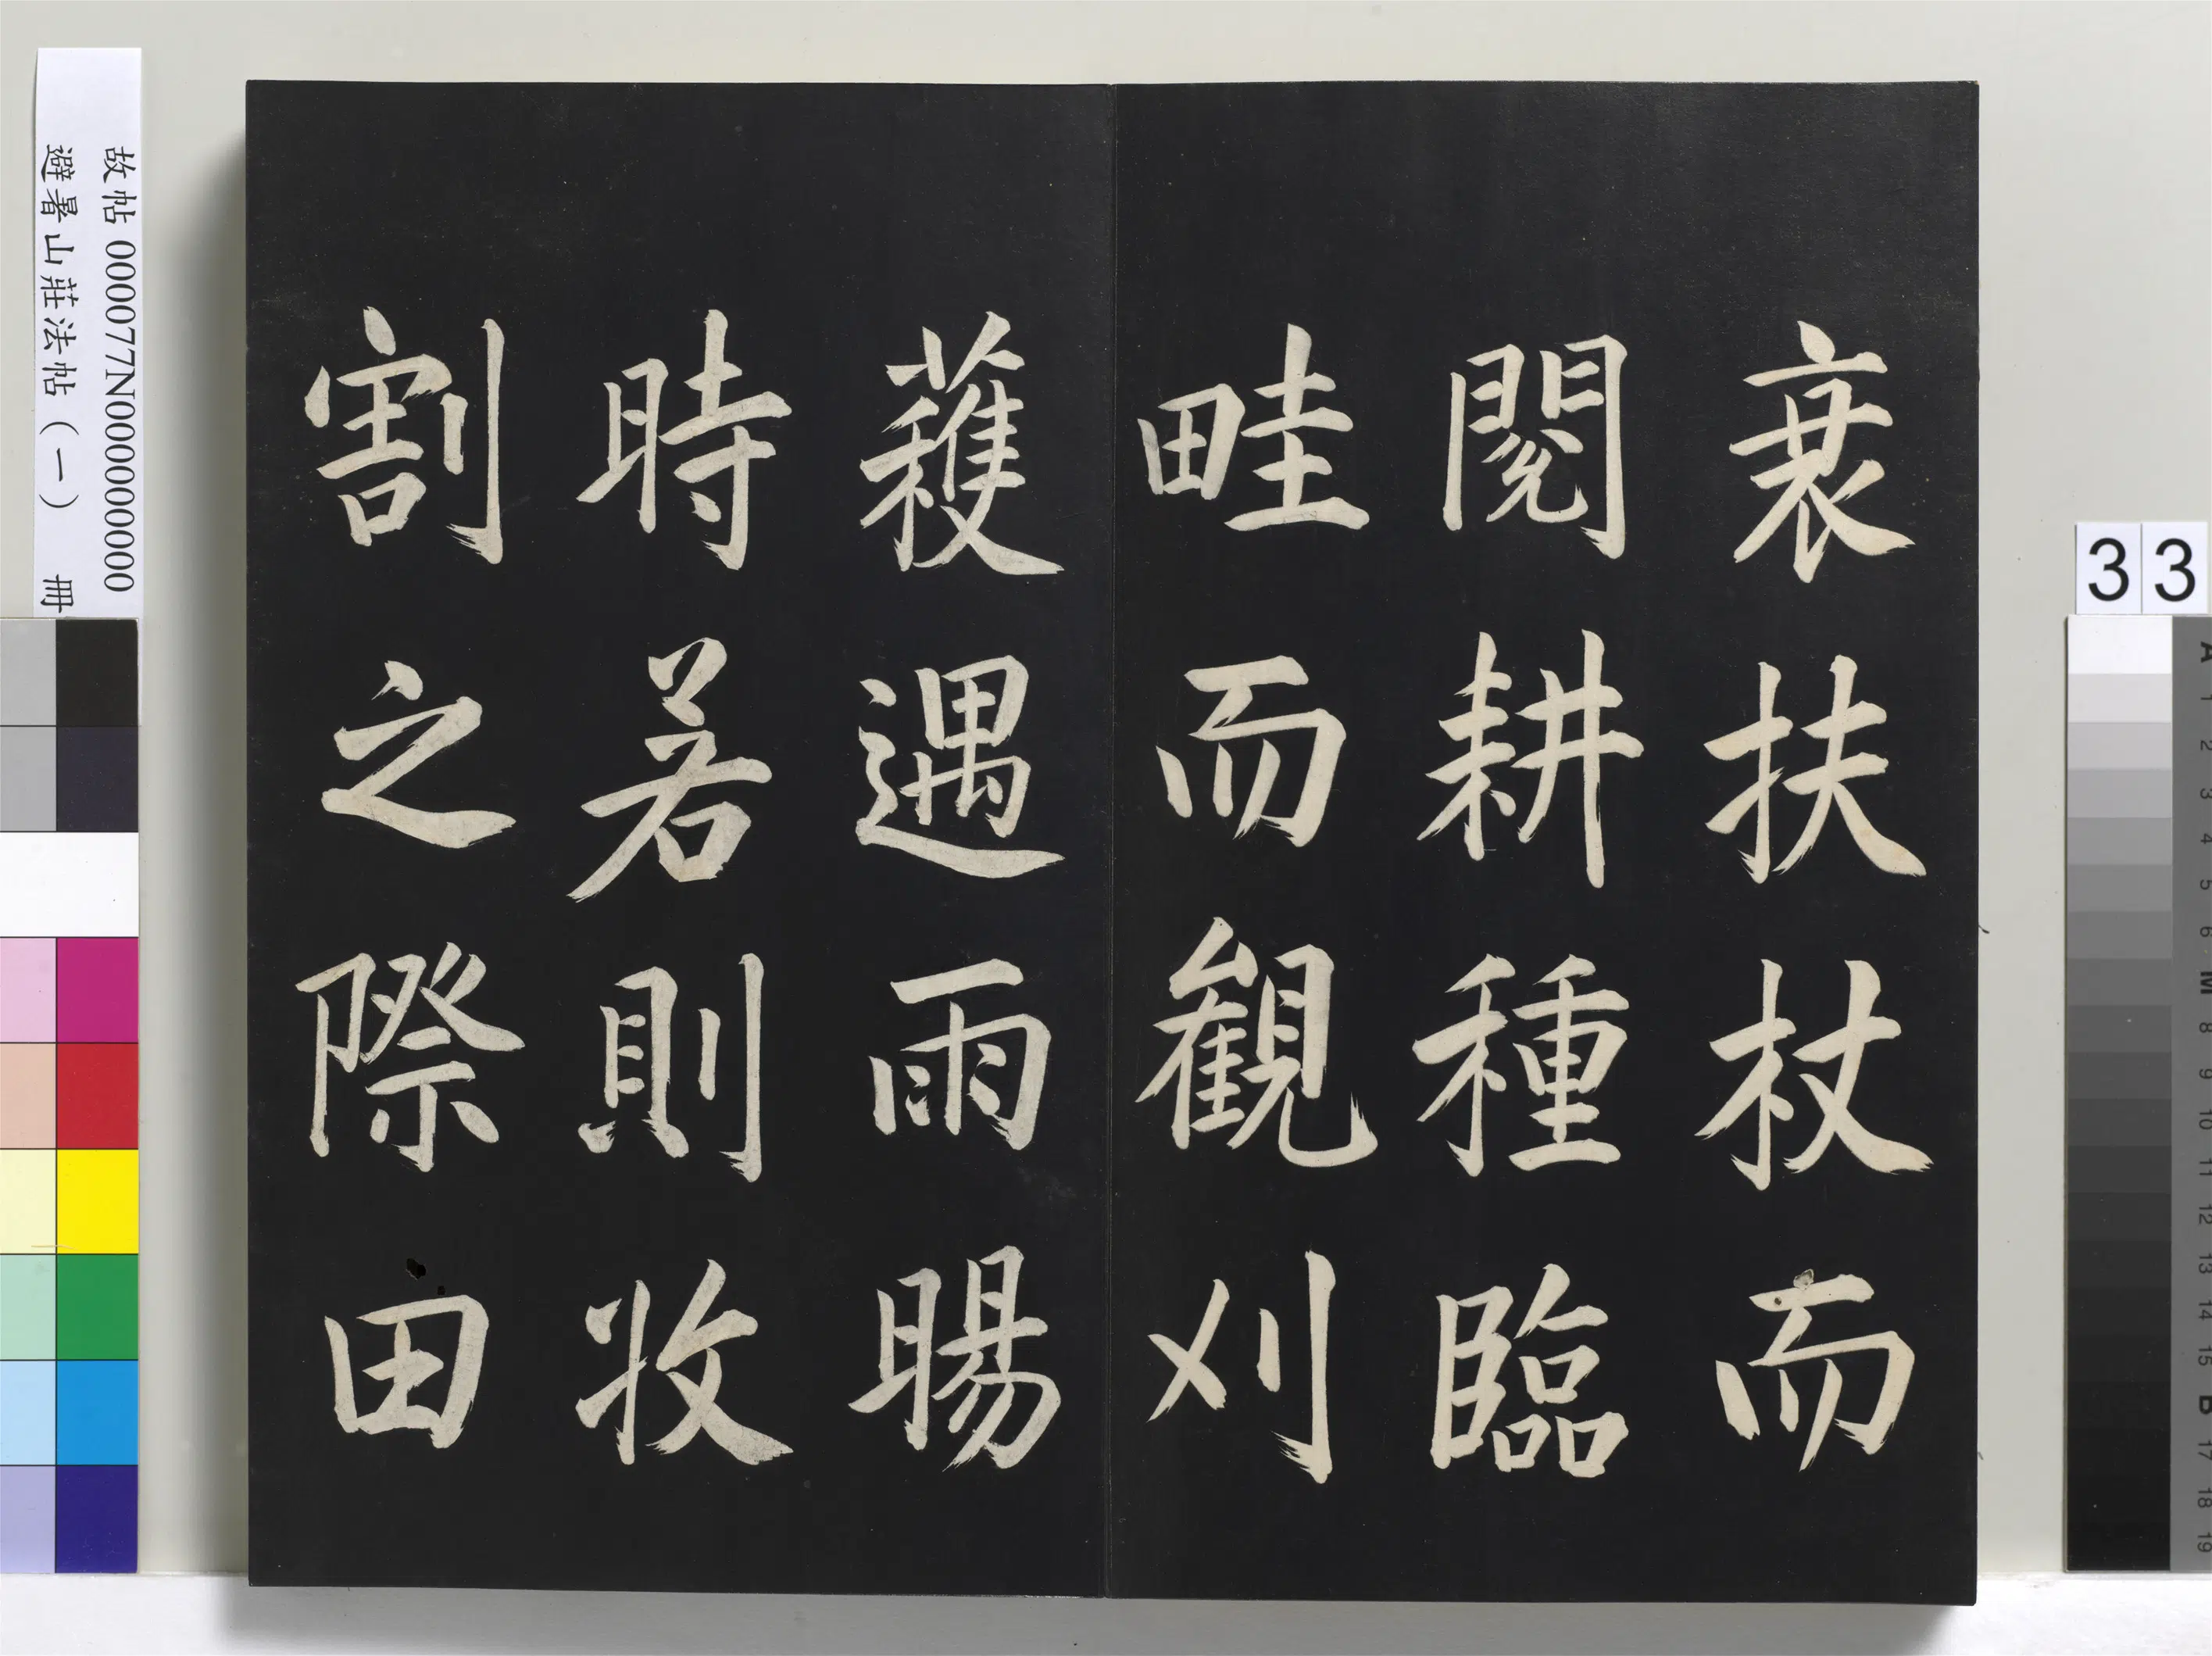 衰扶杖而
閱耕種臨
畦而觀刈
穫遇雨暘
時若則收
割之際田
故帖 000077N000000000
避暑山莊法帖（一） 冊
33
A 1 2 3 4 5 6 M 8 9 10 11 12 13 14 15 B 17 18 19